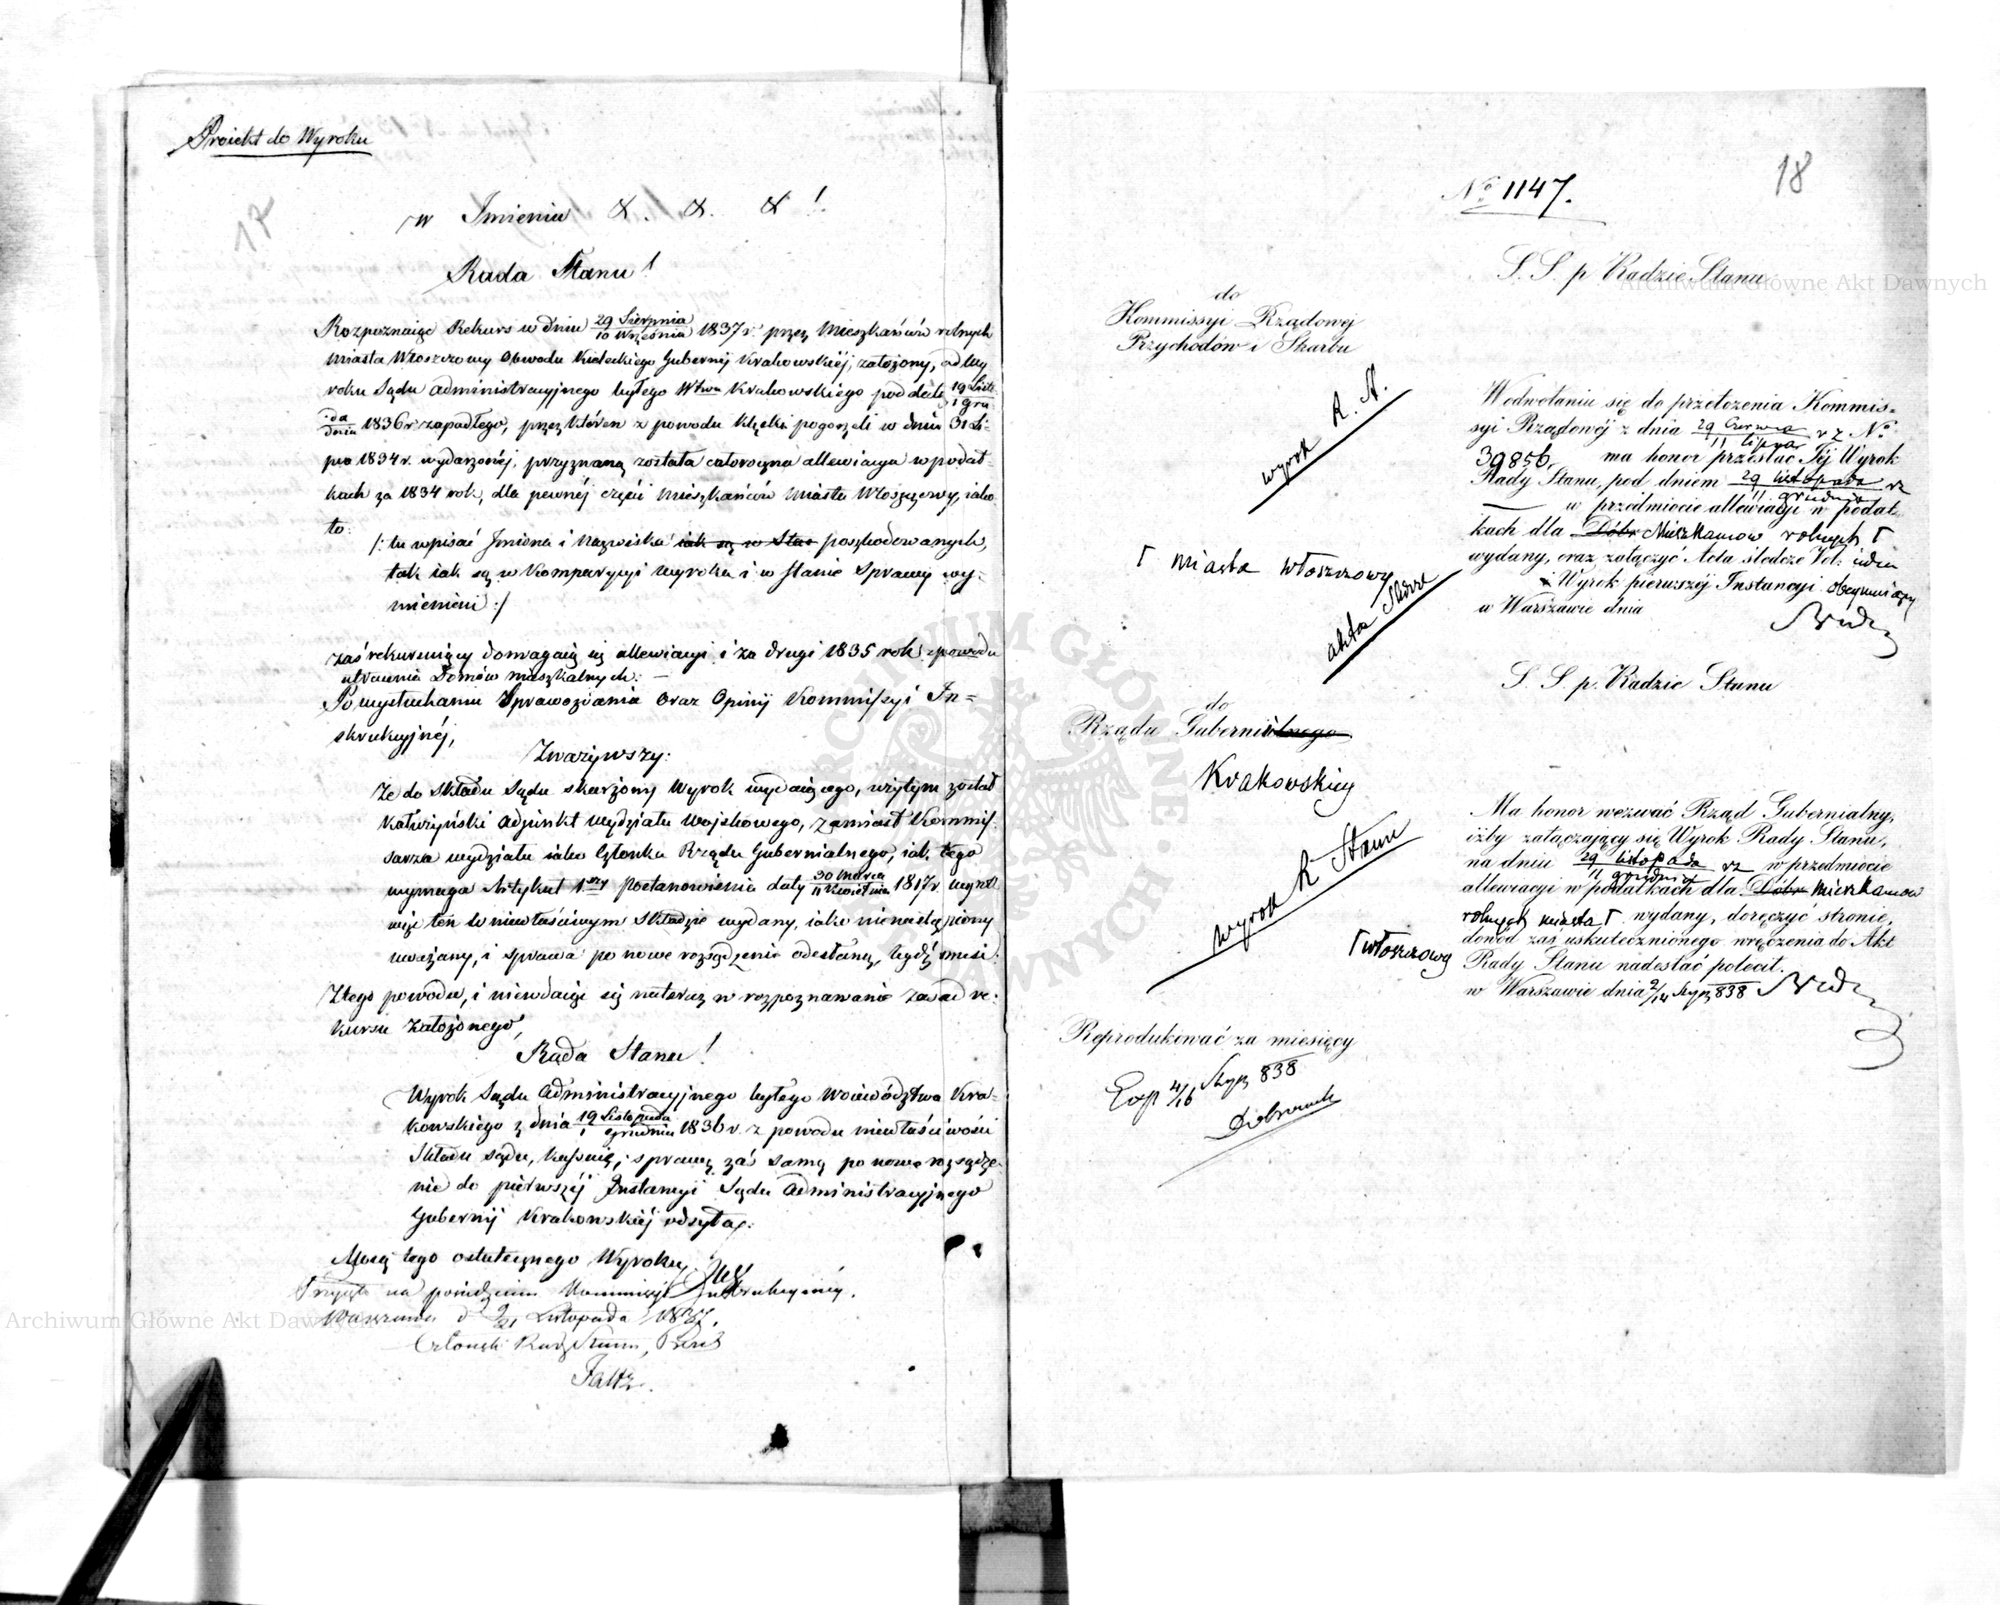 Proiekt do Wyroku
17
w Imieniu &. &. &!
Rada Stanu!
Rozpoznaiąc Rekurs w dniu 29 Sierpnia / 10 Września 1837 r. przez Mieszkańców rolnych
miasta Włoszczowy Obwodu Kieleckiego Gubernij Krakowskiéj, założony, od Wy
roku Sądu Administracyjnego byłego Wtwa Krakowskiego pod datą 19 Listo
pada / 1 Grudnia 1836 r. zapadłego, przez któren z powodu klęski pogorzeli w dniu 31 Li-
pca 1834 r. wydarzonéj, przyznaną została całoroczna allewiacya w podat-
kach za 1834 rok, dla pewnéj części Mieszkańców Miasta Włoszczowy, iako
to:
/: tu wpisać Imiona i Nazwiska iak są w Sta poszkodowanych,
tak iak są w Komparycyi wyroku i w stanie Sprawy wy-
mienieni :/
zaś rekuruiący domagaią się allewiacyi i za drugi 1835 rok z powodu
utracenia Domów mieszkalnych. —
Po wysłuchaniu Sprawozdania oraz Opinij Kommissyi In-
strukcyjnéj,
Zważywszy:
Że do składu Sądu skarżony Wyrok wydaiącego, użytym został
Kałużyński Adjunkt wydziału Wojskowego, zamiast Kommis-
sarza wydziału iako Członka Rządu Gubernialnego, iak tego
wymaga Artykuł 1szy postanowienia daty 30 Marca / 11 Kwietnia 1817 r. wyrok
więc ten w niewłaściwym składzie wydany, iako nienastąpiony
uważany, i sprawa po nowe rozsądzenie odesłaną, bydź musi.
Z tego powodu, i niewdaiąc się na teraz w rozpoznawanie zasad re-
kursu założonego,
Rada Stanu!
Wyrok Sądu Administracyjnego byłego Województwa Kra-
kowskiego z dnia 19 Listopada / 1 Grudnia 1836 r. z powodu niewłaściwości
składu sądu, kassuie, sprawę zaś samą po nowe rozsądze-
nie do pierwszéj Instancyi Sądu Administracyjnego
Gubernij Krakowskiéj odsyła.
Mocą tego ostatecznego Wyroku,
Przyjęto na posiedzeniu Kommissyi Instrukcyinéy.
Warszawa d 9/21 Listopada 1837.
Członek Rady Stanu, Prezes
Faltz.
18
No 1147.
S. S. p. Radzie Stanu
do
Kommissyi Rządowej
Przychodów i Skarbu
wyrok R. S.
W odwołaniu się do przełożenia Kommis-
syi Rządowéj z dnia 29 Czerwca / 11 lipca r z No
39856, ma honor przesłać Jéj Wyrok
Rady Stanu, pod dniem 29 listopada / 11 grudnia rz
w przedmiocie allewiacyi w podat-
kach dla Dóbr Mieszkancow rolnych Γ
Γ miasta Włoszczowy
wydany, oraz załączyć Acta śledcze Vol: iedno
Wyrok pierwszéj Instancyi obeymuiący
w Warszawie dnia
akta Skarb
S. S. p. Radzie Stanu
do
Rządu Gubernialnego
Krakowskiey
wyrok R Stanu
Ma honor wezwać Rząd Gubernialny,
iżby załączający się Wyrok Rady Stanu,
na dniu 29 listopada / 11 grudnia rz w przedmiocie
allewiacyi w podatkach dla Dóbr mieszkancow
rolnych miasta Γ wydany, doręczyć stronie,
Γ Włoszczowy
dowód zaś uskutecznionego wręczenia do Akt
Rady Stanu nadesłać polecił.
w Warszawie dnia 2/14 Stycz 838
Reprodukować za miesięcy
Exp 4/16 Stycz 838
Archiwum Główne Akt Dawnych
Archiwum Główne Akt Dawnych
ARCHIWUM GŁÓWNE AKT DAWNYCH